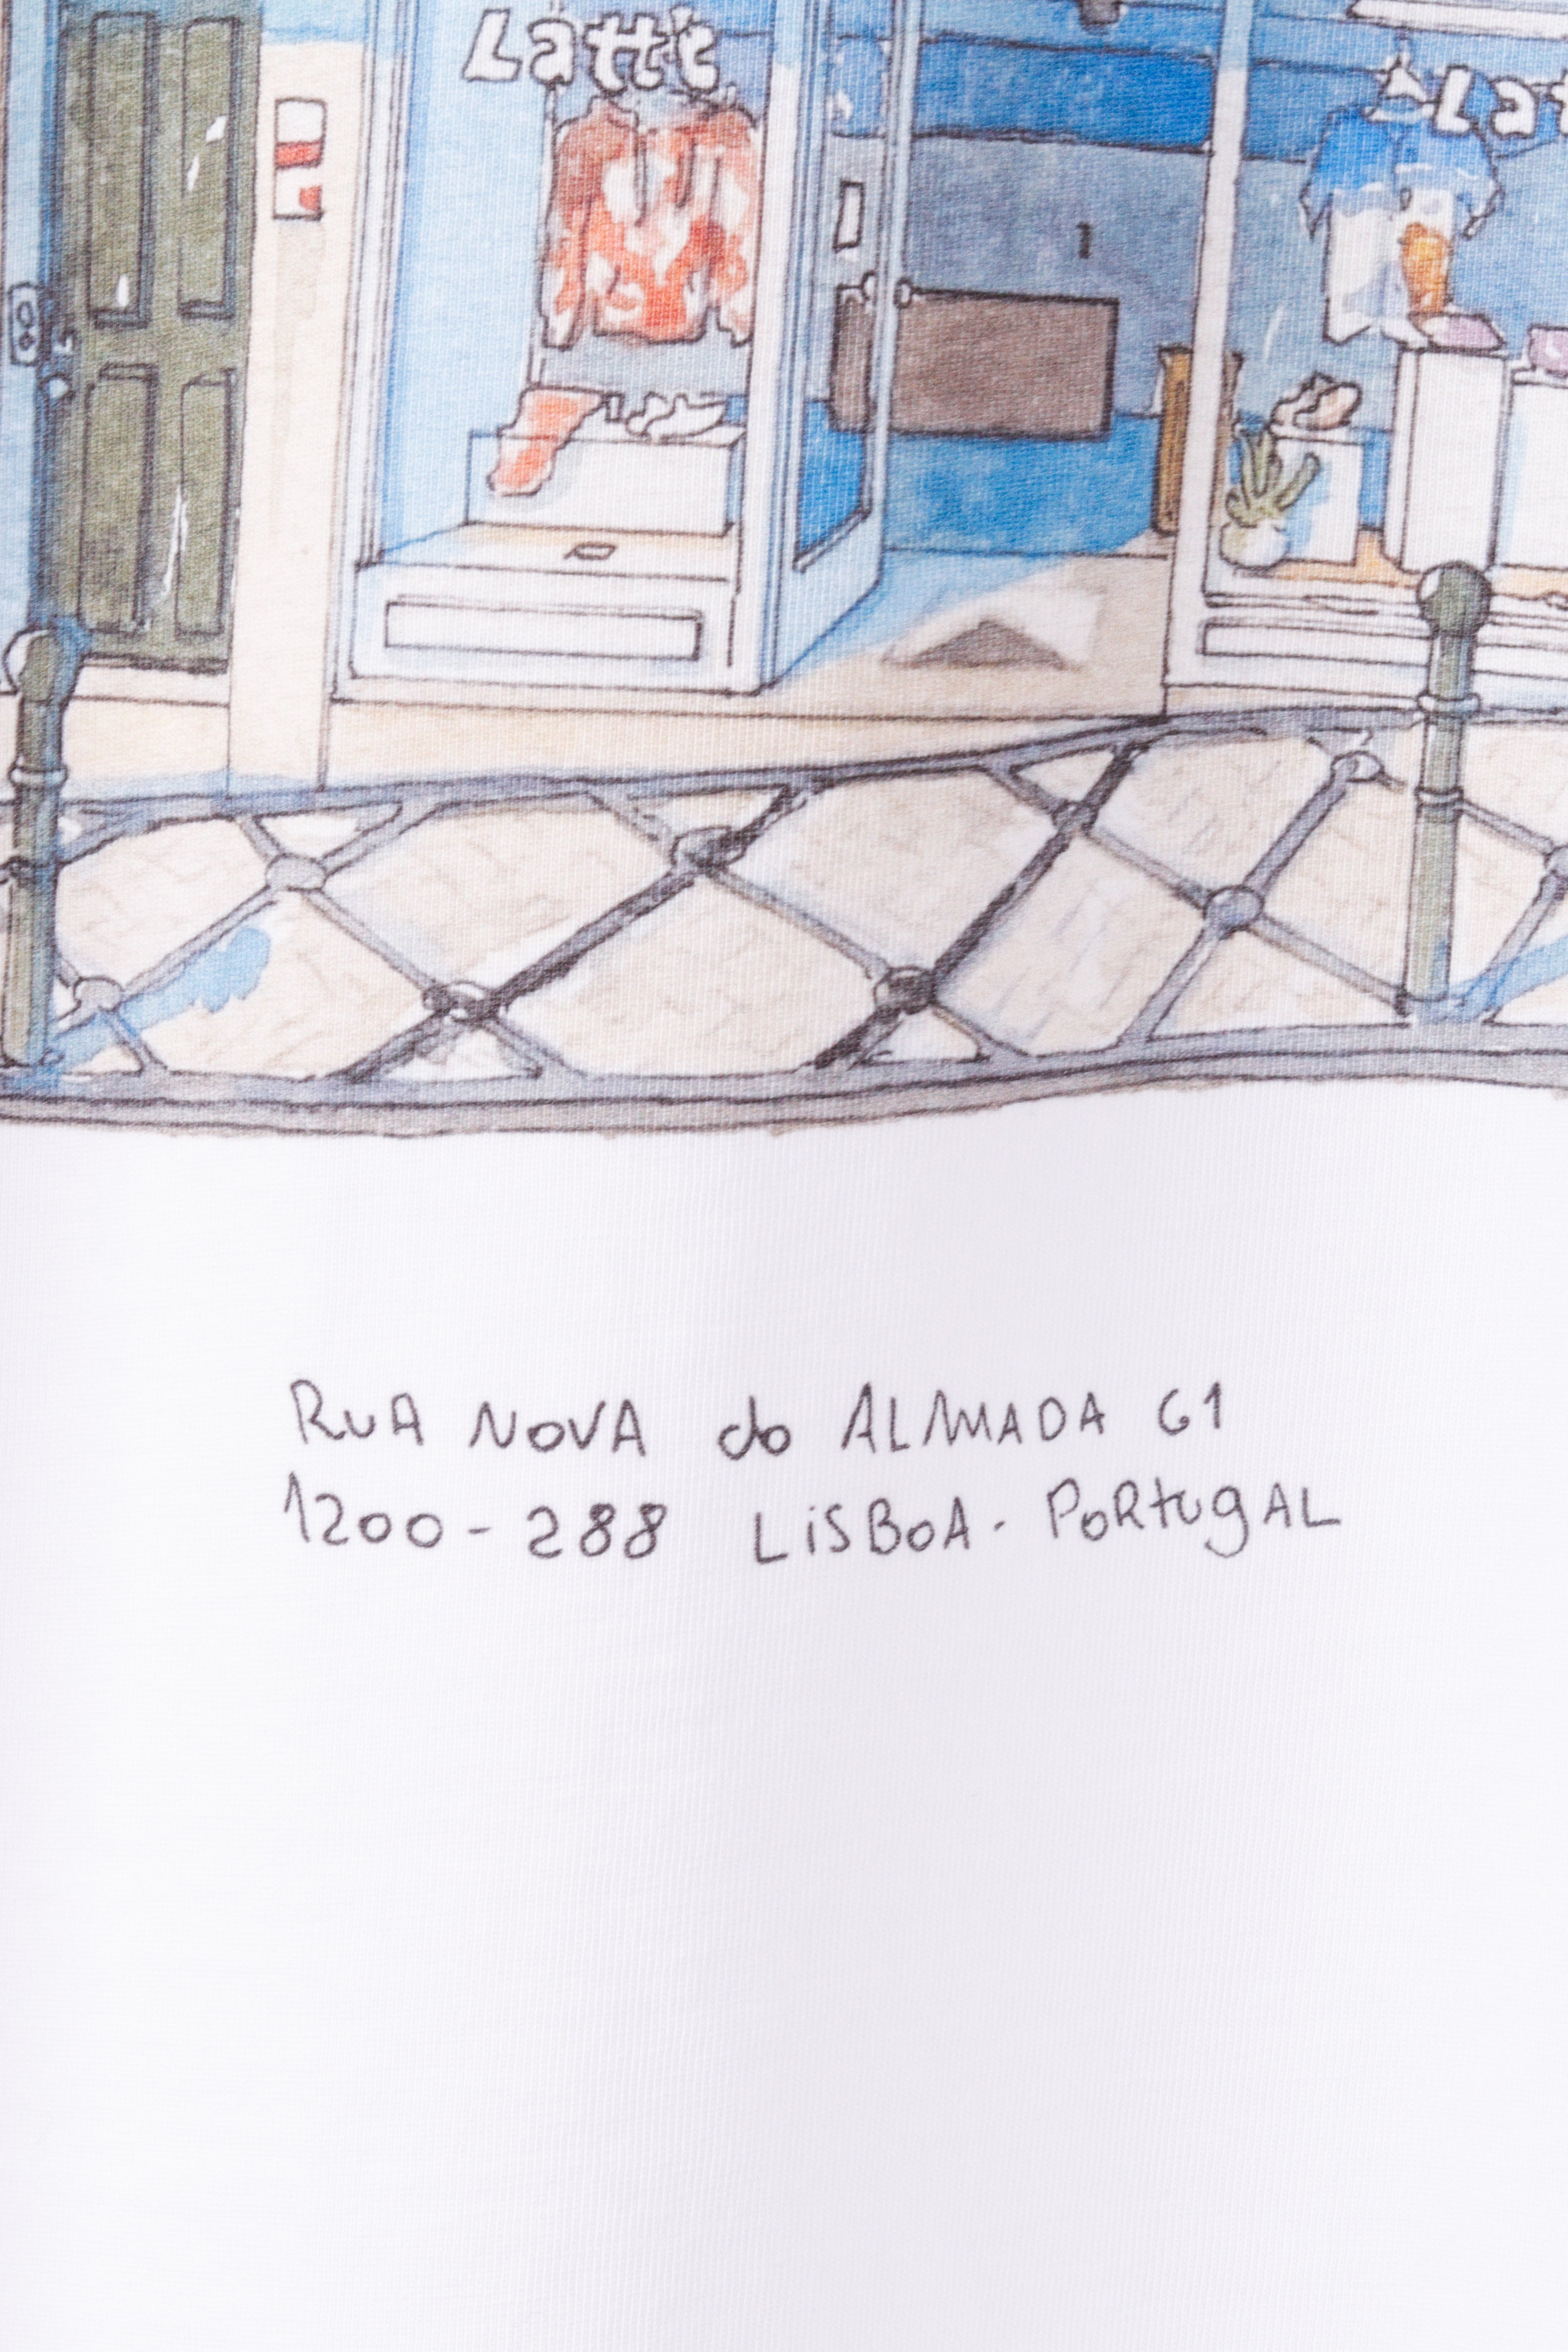 Latte
Lat
RUA NOVA do ALMADA 61
1200-288 LISBOA. PORTUGAL